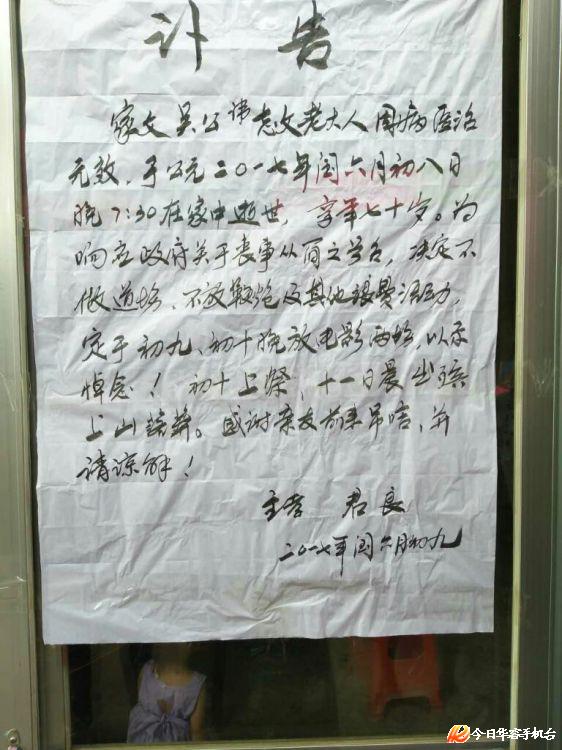 讣告
家父吴公讳志文老大人因病医治
无效，于公元二〇一七年闰六月初八日
晚7:30在家中逝世，享年七十岁。为
响应政府关于丧事从简之号召，决定不
做道场、不放鞭炮及其他浪费活动，
定于初九、初十晚放电影两场，以示
悼念！初十上祭，十一日晨出殡
上山安葬。感谢亲友前来吊唁，并
请谅解！
主孝 君良
二〇一七年闰六月初九
今日华容手机台